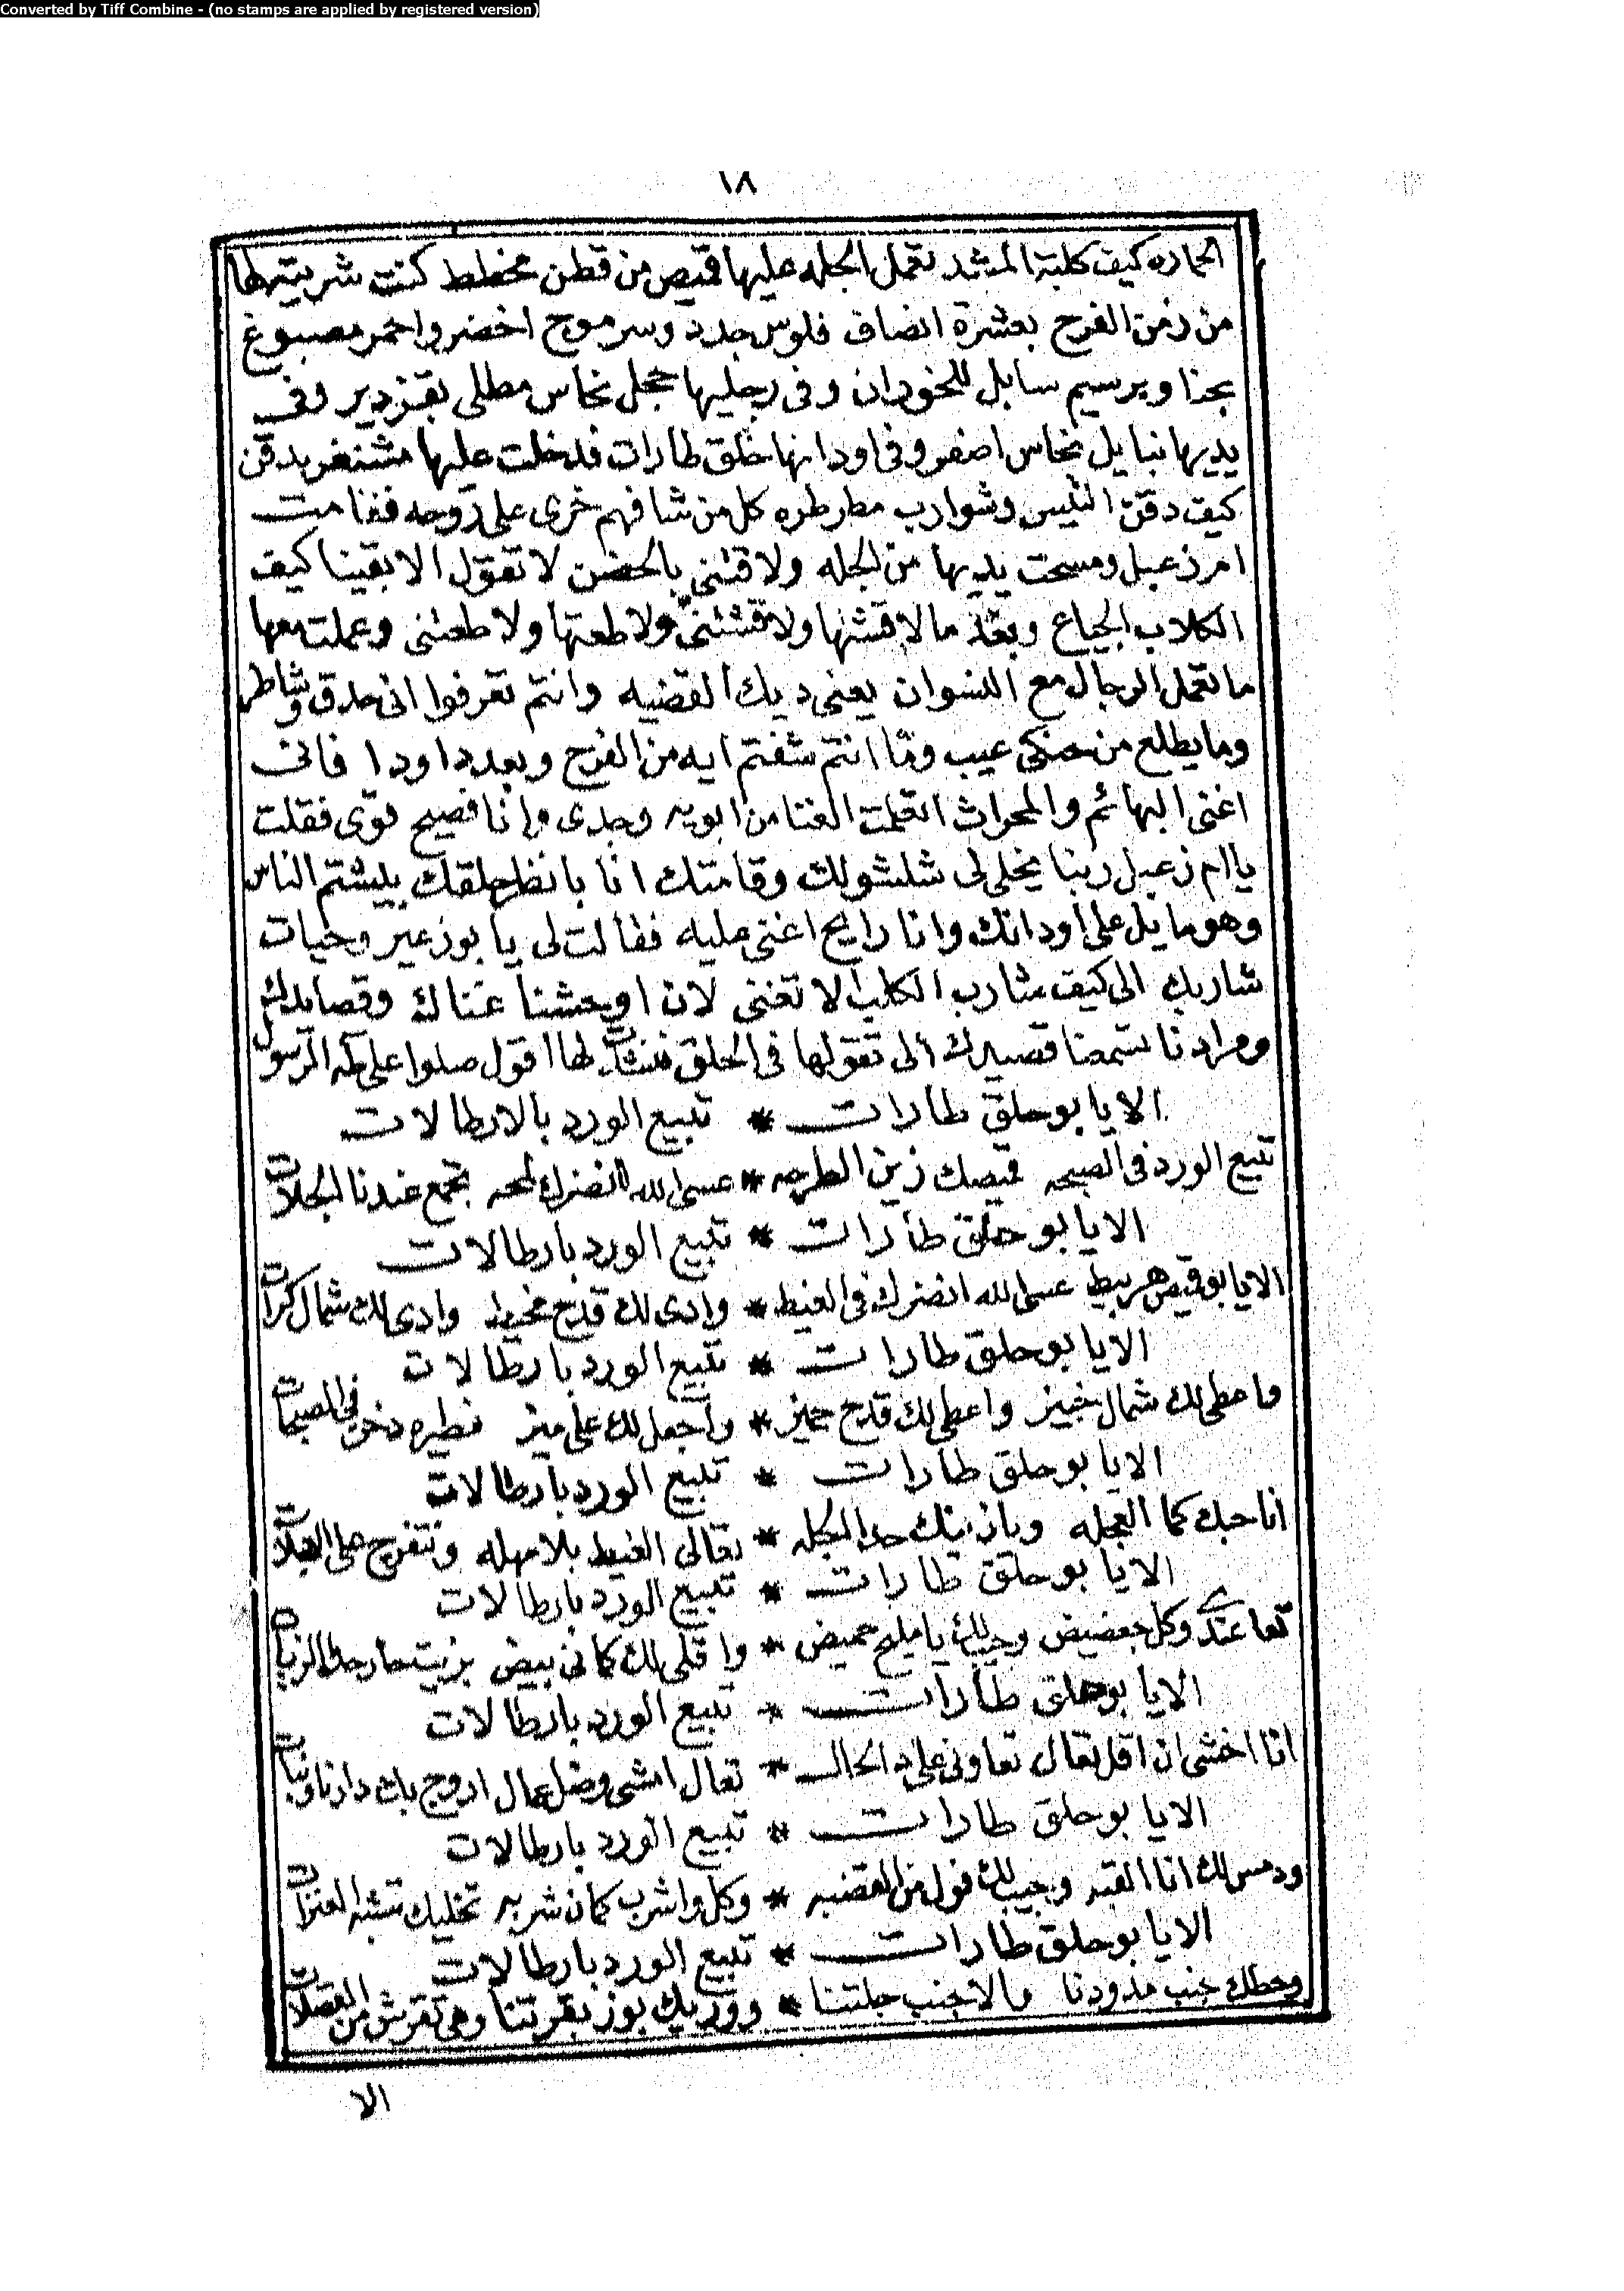 Converted by Tiff Combine - (no stamps are applied by registered version)
١٨
الحماره كيف كلبة المشد تعمل الجله عليها قميص من قطن مخطط كنت شريتهلها
من زمن الفرح بعشرة انصاف فلوس جدد وسرموج اخضر واحمر مصبوغ
بحنا وبرسيم سابل للخودان وفى رجليها حجل نحاس مطلى بقزدير وفى
يديها نبايل نحاس اصفر وفى اودانها حلق طارات فدخلت عليها مشنغر بدقن
كيف دقن التيس وشوارب مطرطره كل من شافهم خرى على روحه فقامت
ام زعبل ومسحت يديها من الجله ولاقتنى بالحضن لا تقول الا بقينا كيف
الكلاب الجياع وبعد ما لاقشتها ولاقشتنى ولاطعتها ولاطعتنى وعملت معها
ما تعمل الرجال مع النسوان يعنى ديك القضيه وانتم تعرفوا انى حدق وشاطر
وما يطلع من حنكى عيب وما انتم شفتم ايه من الفرح وبعد دا ودا فانى
اغنى البهائم والمحراث اتعلمت الغنا من ابويه وجدى وانا فصيح قوى فقلت
يا ام زعبل ربنا يخلى لى شلشولك وقامتك انا بانظر حلقك بيشتم الناس
وهو مايل على اودانك وانا رايح اغنى عليه فقالت لى يا بو زعير وحيات
شاربك الى كيف شارب الكلب لا تغنى لان اوحشنا غناك وقصايدك
ومرادنا نسمعنا قصيدك الى تقولها فى الحلق فنشدت لها اقول صلوا على طه الرسول
الا يا بو حلق طارات * تبيع الورد بالارطالات
تبيع الورد فى الصبحه قميصك زين الطرحه * عسى الله انضرك لمحه تجمع عندنا الجلات
الا يا بو حلق طارات * تبيع الورد بارطالات
الا يا بو قميص هربيط عسى الله انضرك فى الغيط * وادى لك قدح مخيط وادى لك شمال كرات
الا يا بو حلق طارات * تبيع الورد بارطالات
واعطى لك شمال خبيز واعطى لك قدح جميز * واجعل لك على ميز فطيره دخن فى الصبحات
الا يا بو حلق طارات * تبيع الورد بارطالات
انا حبك كما العجله وبازينك حدا الجله * تعالى الغيط بلا مهله ونتفرج على العجلات
الا يا بو حلق طارات * تبيع الورد بارطالات
تعا عندى وكل جعضيض وجيب لك يا مليح حميض * واقلى لك كمانى بيض بزيت حار حدا الزيات
الا يا بو حلق طارات * تبيع الورد بارطالات
انا اخشى ان اقل تعال تعاونى على دا الحال * تعال امشى وضل عمال اروج بك دارنا وتبات
الا يا بو حلق طارات * تبيع الورد بارطالات
ودمس لك انا القدر وجيب لك فول من القضبه * وكل واشرب كمان شربه تخليك تشبه العنزات
الا يا بو حلق طارات * تبيع الورد بارطالات
وحطك جنب مدودنا والا جنب جلتنا * ووريك بوز بقرتنا وهى تقرش من القصلات
الا